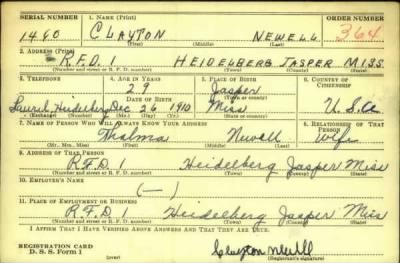 SERIAL NUMBER 1. NAME (Print) ORDER NUMBER
1460 CLAYTON NEWELL 364
(First) (Middle) (Last)
2. ADDRESS (Print)
R.F.D. 1 HEIDELBERG JASPER MISS
(Number and street or R. F. D. number) (Town) (County) (State)
3. TELEPHONE 4. AGE IN YEARS 5. PLACE OF BIRTH 6. COUNTRY OF CITIZENSHIP
29 Jasper
DATE OF BIRTH (Town or county)
Laurel, Heidelberg Dec 26 1910 Miss U.S.A
(Exchange) (Number) (Mo.) (Day) (Yr.) (State or country)
7. NAME OF PERSON WHO WILL ALWAYS KNOW YOUR ADDRESS 8. RELATIONSHIP OF THAT PERSON
Thalma Newell Wife
(Mr., Mrs., Miss) (First) (Middle) (Last)
9. ADDRESS OF THAT PERSON
R.F.D. 1 Heidelberg Jasper Miss
(Number and street or R. F. D. number) (Town) (County) (State)
10. EMPLOYER'S NAME
(—)
11. PLACE OF EMPLOYMENT OR BUSINESS
R.F.D. 1 Heidelberg Jasper Miss
(Number and street or R. F. D. number) (Town) (County) (State)
I AFFIRM THAT I HAVE VERIFIED ABOVE ANSWERS AND THAT THEY ARE TRUE.
REGISTRATION CARD
D. S. S. Form 1 Clayton Newell
(Registrant's signature)